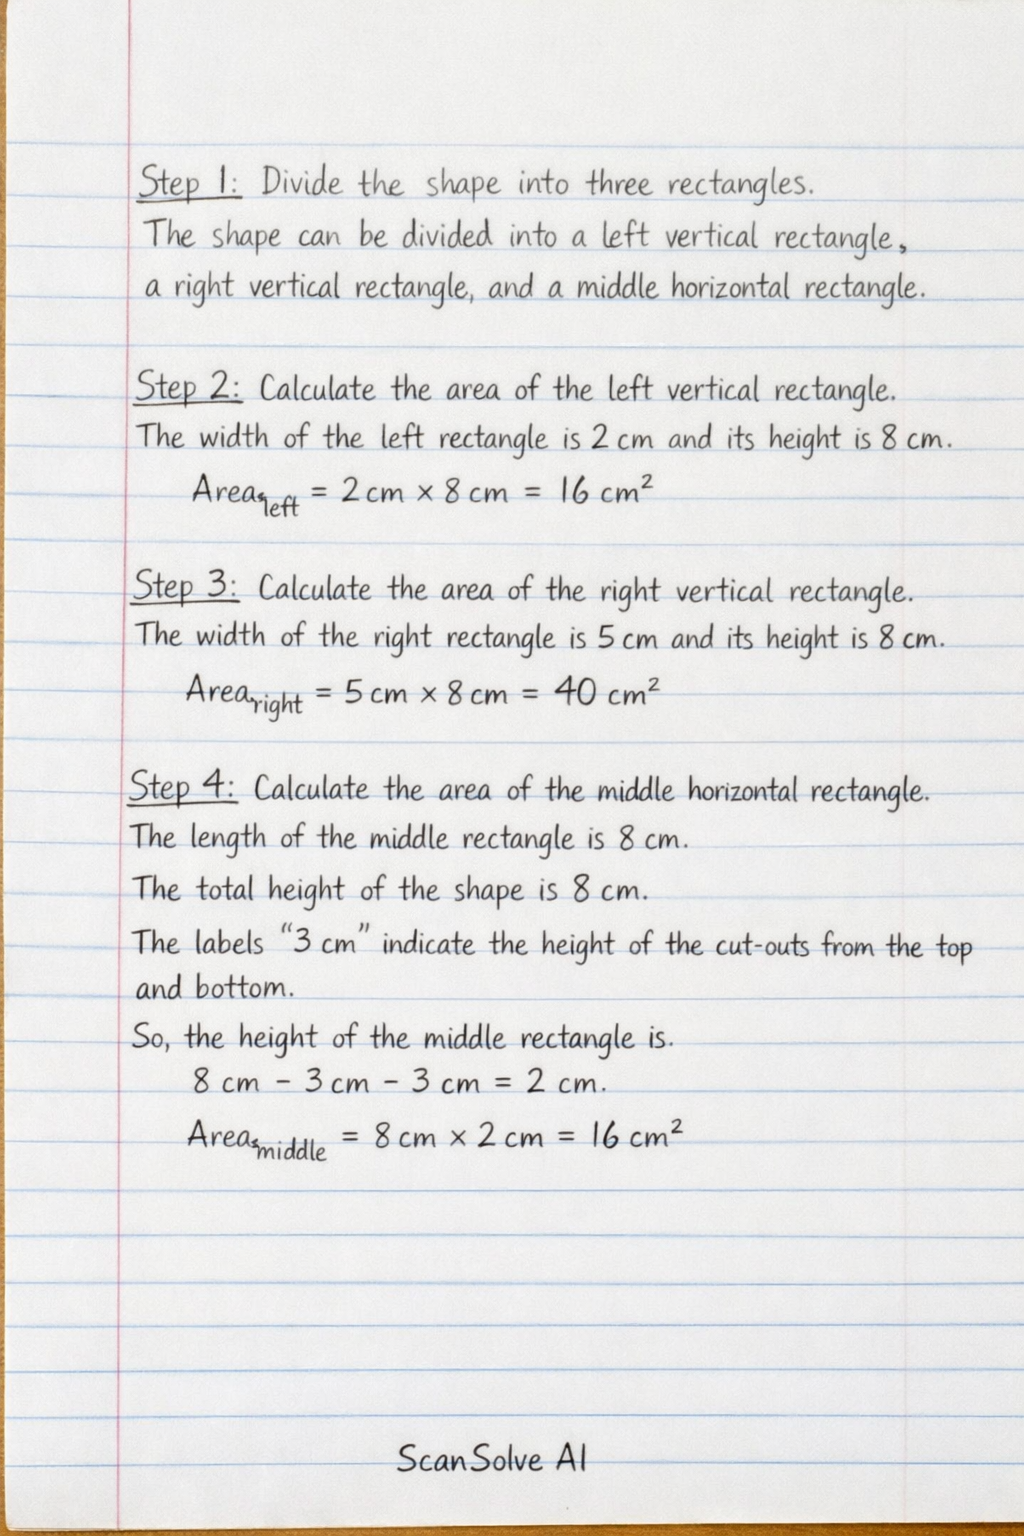 Step 1: Divide the shape into three rectangles.
The shape can be divided into a left vertical rectangle,
a right vertical rectangle, and a middle horizontal rectangle.
Step 2: Calculate the area of the left vertical rectangle.
The width of the left rectangle is 2 cm and its height is 8 cm.
Area left = 2 cm × 8 cm = 16 cm²
Step 3: Calculate the area of the right vertical rectangle.
The width of the right rectangle is 5 cm and its height is 8 cm.
Area right = 5 cm × 8 cm = 40 cm²
Step 4: Calculate the area of the middle horizontal rectangle.
The length of the middle rectangle is 8 cm.
The total height of the shape is 8 cm.
The labels “3 cm” indicate the height of the cut-outs from the top
and bottom.
So, the height of the middle rectangle is.
8 cm − 3 cm − 3 cm = 2 cm.
Area middle = 8 cm × 2 cm = 16 cm²
ScanSolve AI